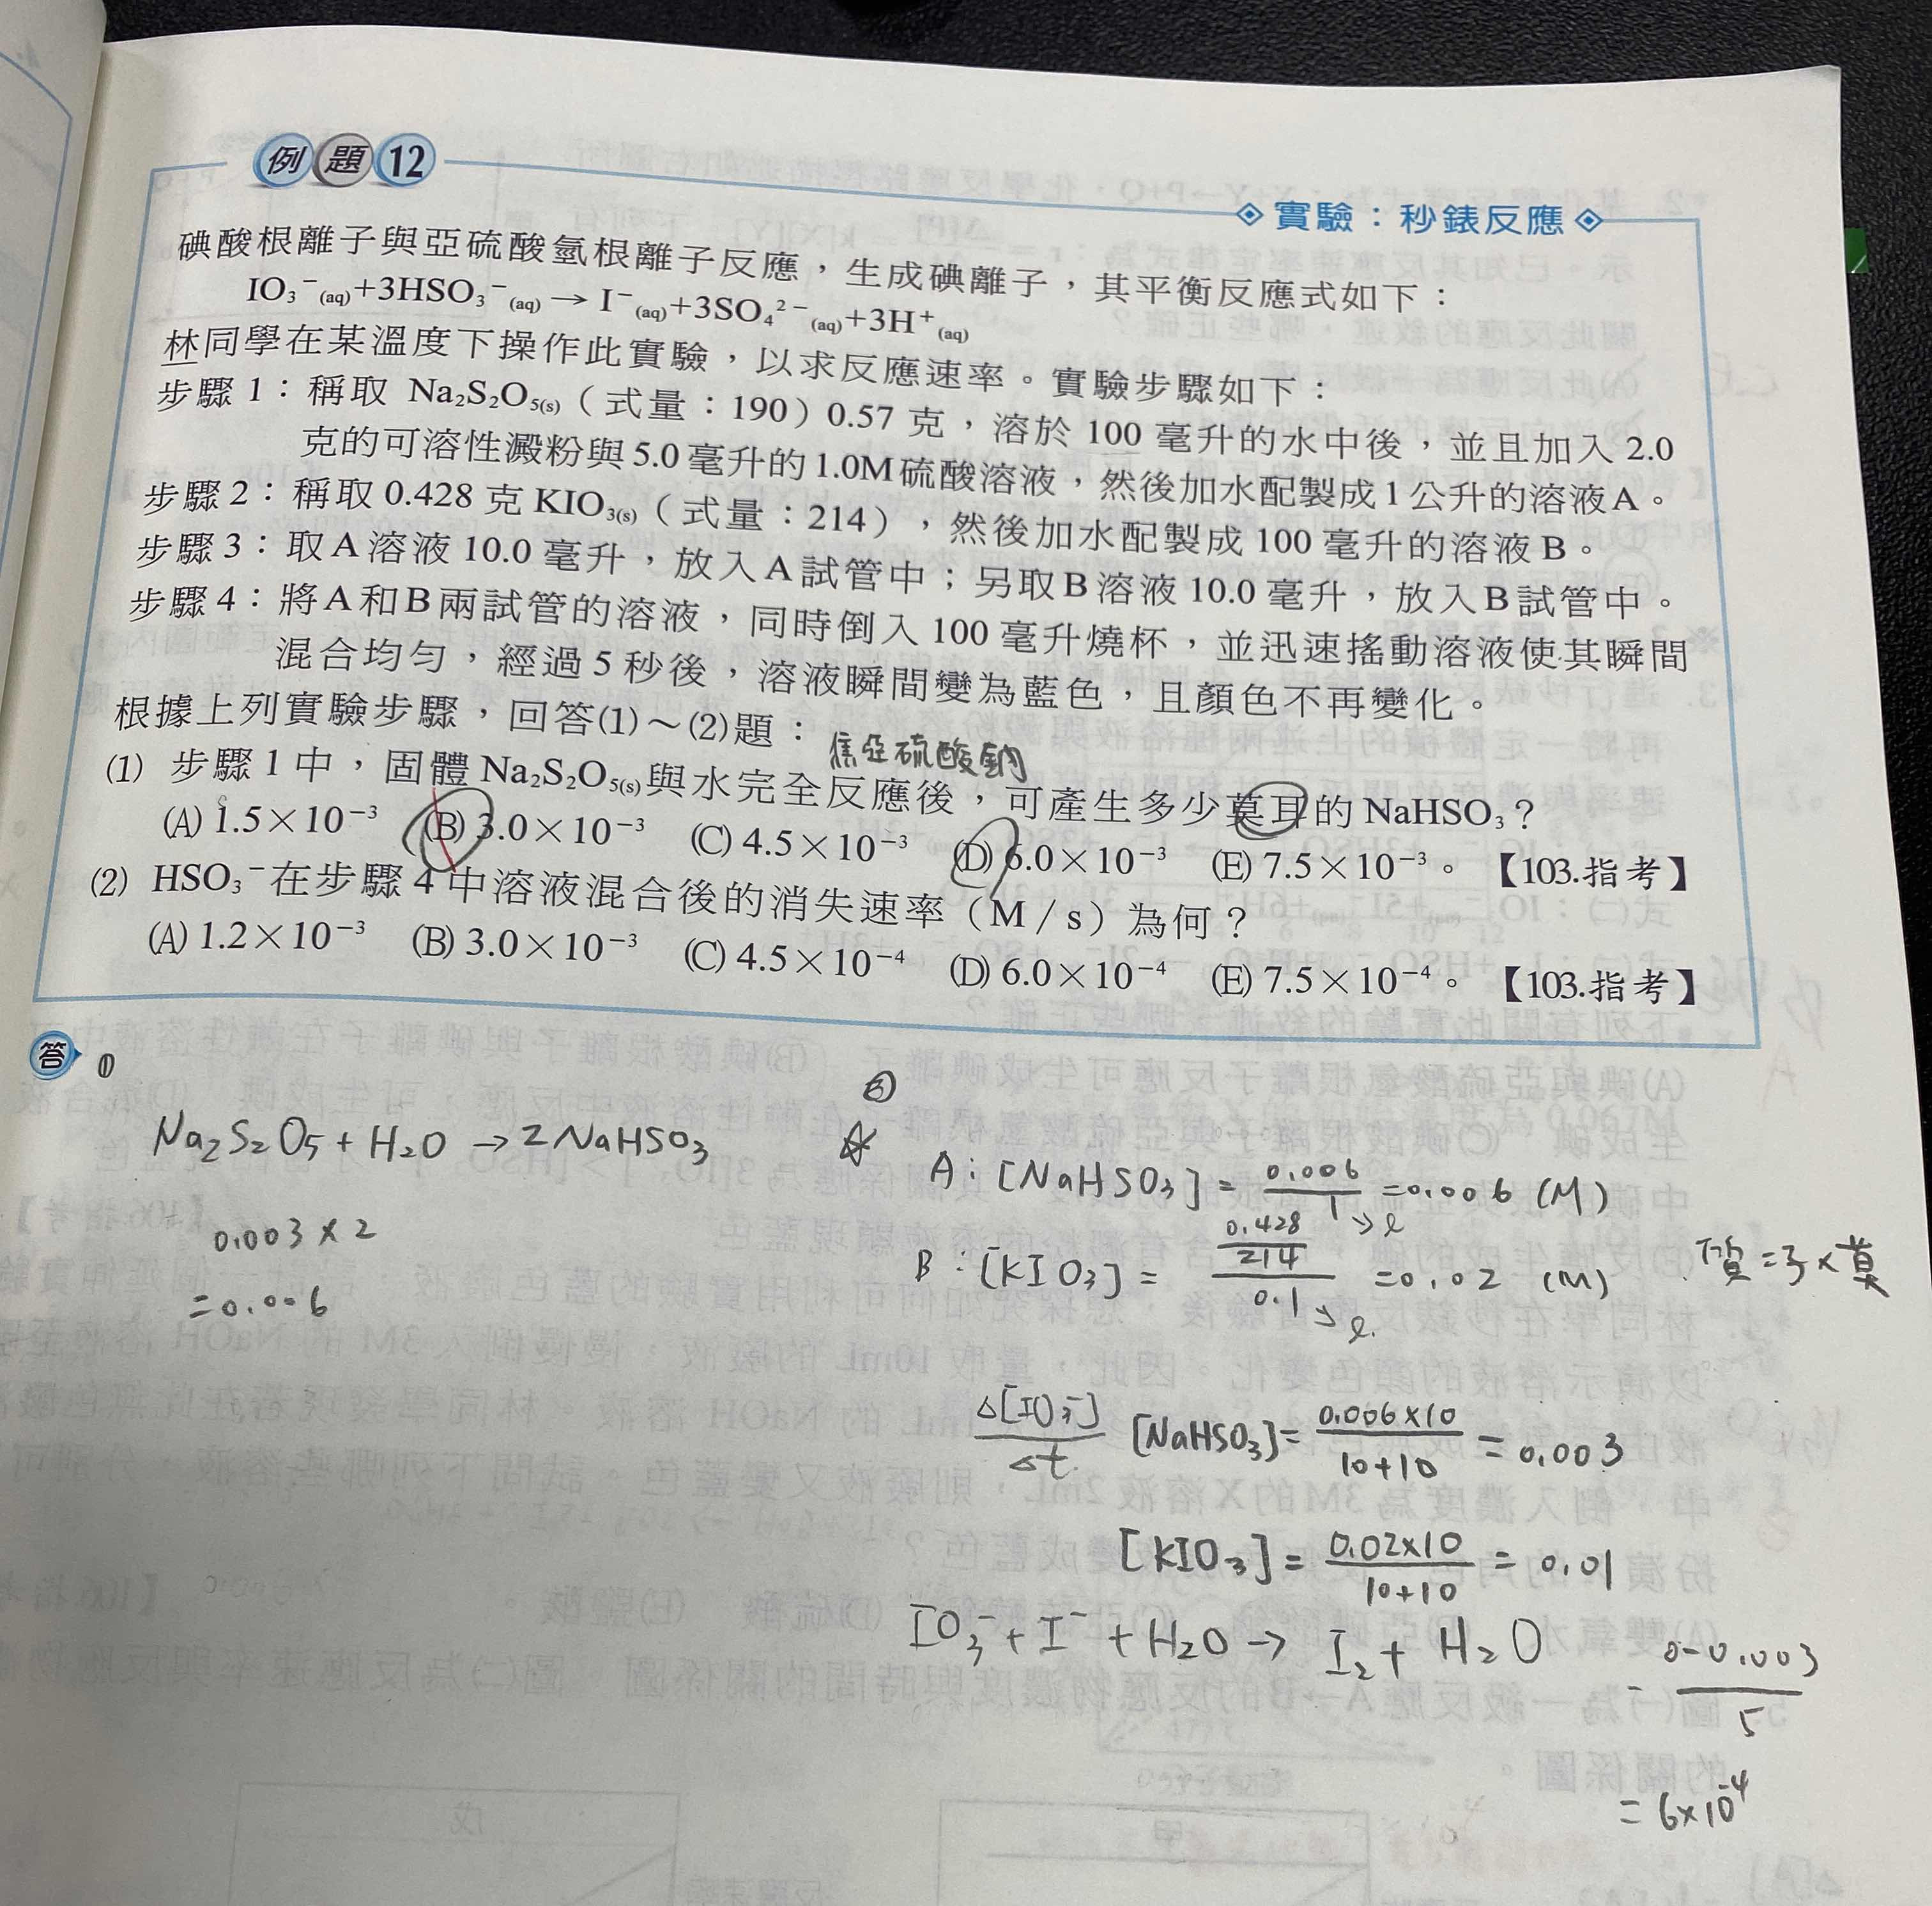 例題12
◇實驗：秒錶反應◇
碘酸根離子與亞硫酸氫根離子反應，生成碘離子，其平衡反應式如下：
IO₃⁻(aq)+3HSO₃⁻(aq)→I⁻(aq)+3SO₄²⁻(aq)+3H⁺(aq)
林同學在某溫度下操作此實驗，以求反應速率。實驗步驟如下：
步驟1：稱取 Na₂S₂O₅(s)（式量：190）0.57 克，溶於 100 毫升的水中後，並且加入 2.0
克的可溶性澱粉與5.0毫升的1.0M硫酸溶液，然後加水配製成1公升的溶液A。
步驟2：稱取 0.428 克 KIO₃(s)（式量：214），然後加水配製成 100 毫升的溶液B。
步驟3：取A溶液 10.0 毫升，放入A試管中；另取B溶液 10.0 毫升，放入B試管中。
步驟4：將A和B兩試管的溶液，同時倒入 100 毫升燒杯，並迅速搖動溶液使其瞬間
混合均勻，經過5秒後，溶液瞬間變為藍色，且顏色不再變化。
根據上列實驗步驟，回答(1)～(2)題：
焦亞硫酸鈉
(1) 步驟1中，固體Na₂S₂O₅(s)與水完全反應後，可產生多少莫耳的 NaHSO₃？
(A) 1.5×10⁻³ (B) 3.0×10⁻³ (C) 4.5×10⁻³ (D) 6.0×10⁻³ (E) 7.5×10⁻³。 【103.指考】
(2) HSO₃⁻在步驟4中溶液混合後的消失速率（M/s）為何？
(A) 1.2×10⁻³ (B) 3.0×10⁻³ (C) 4.5×10⁻⁴ (D) 6.0×10⁻⁴ (E) 7.5×10⁻⁴。 【103.指考】
答 ①
Na₂S₂O₅+H₂O→2NaHSO₃
0.003×2
=0.006
②
☆
A：[NaHSO₃]=0.006/1=0.006 (M)
→ℓ
B：[KIO₃]=(0.428/214)/0.1=0.02 (M)
→ℓ.
質=分×莫
Δ[IO₃⁻]/Δt [NaHSO₃]=(0.006×10)/(10+10)=0.003
[KIO₃]=(0.02×10)/(10+10)=0.01
IO₃⁻+I⁻+H₂O→I₂+H₂O
-(0-0.003)/5
=6×10⁻⁴